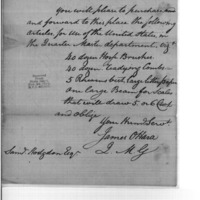 You will please to purchase
and forward to this place the following
articles for use of the United States in
the Quarter Master department, Viz
40 Dozn Hoop Brushes
40 Dozn Combs
5 Reams best large letter paper
one large Beam for Scales
that will draw 5 or 6 Cwt
and oblige
Your Hum Servt
James OHara
Q. M. G.
Saml Hodgdon Esqr